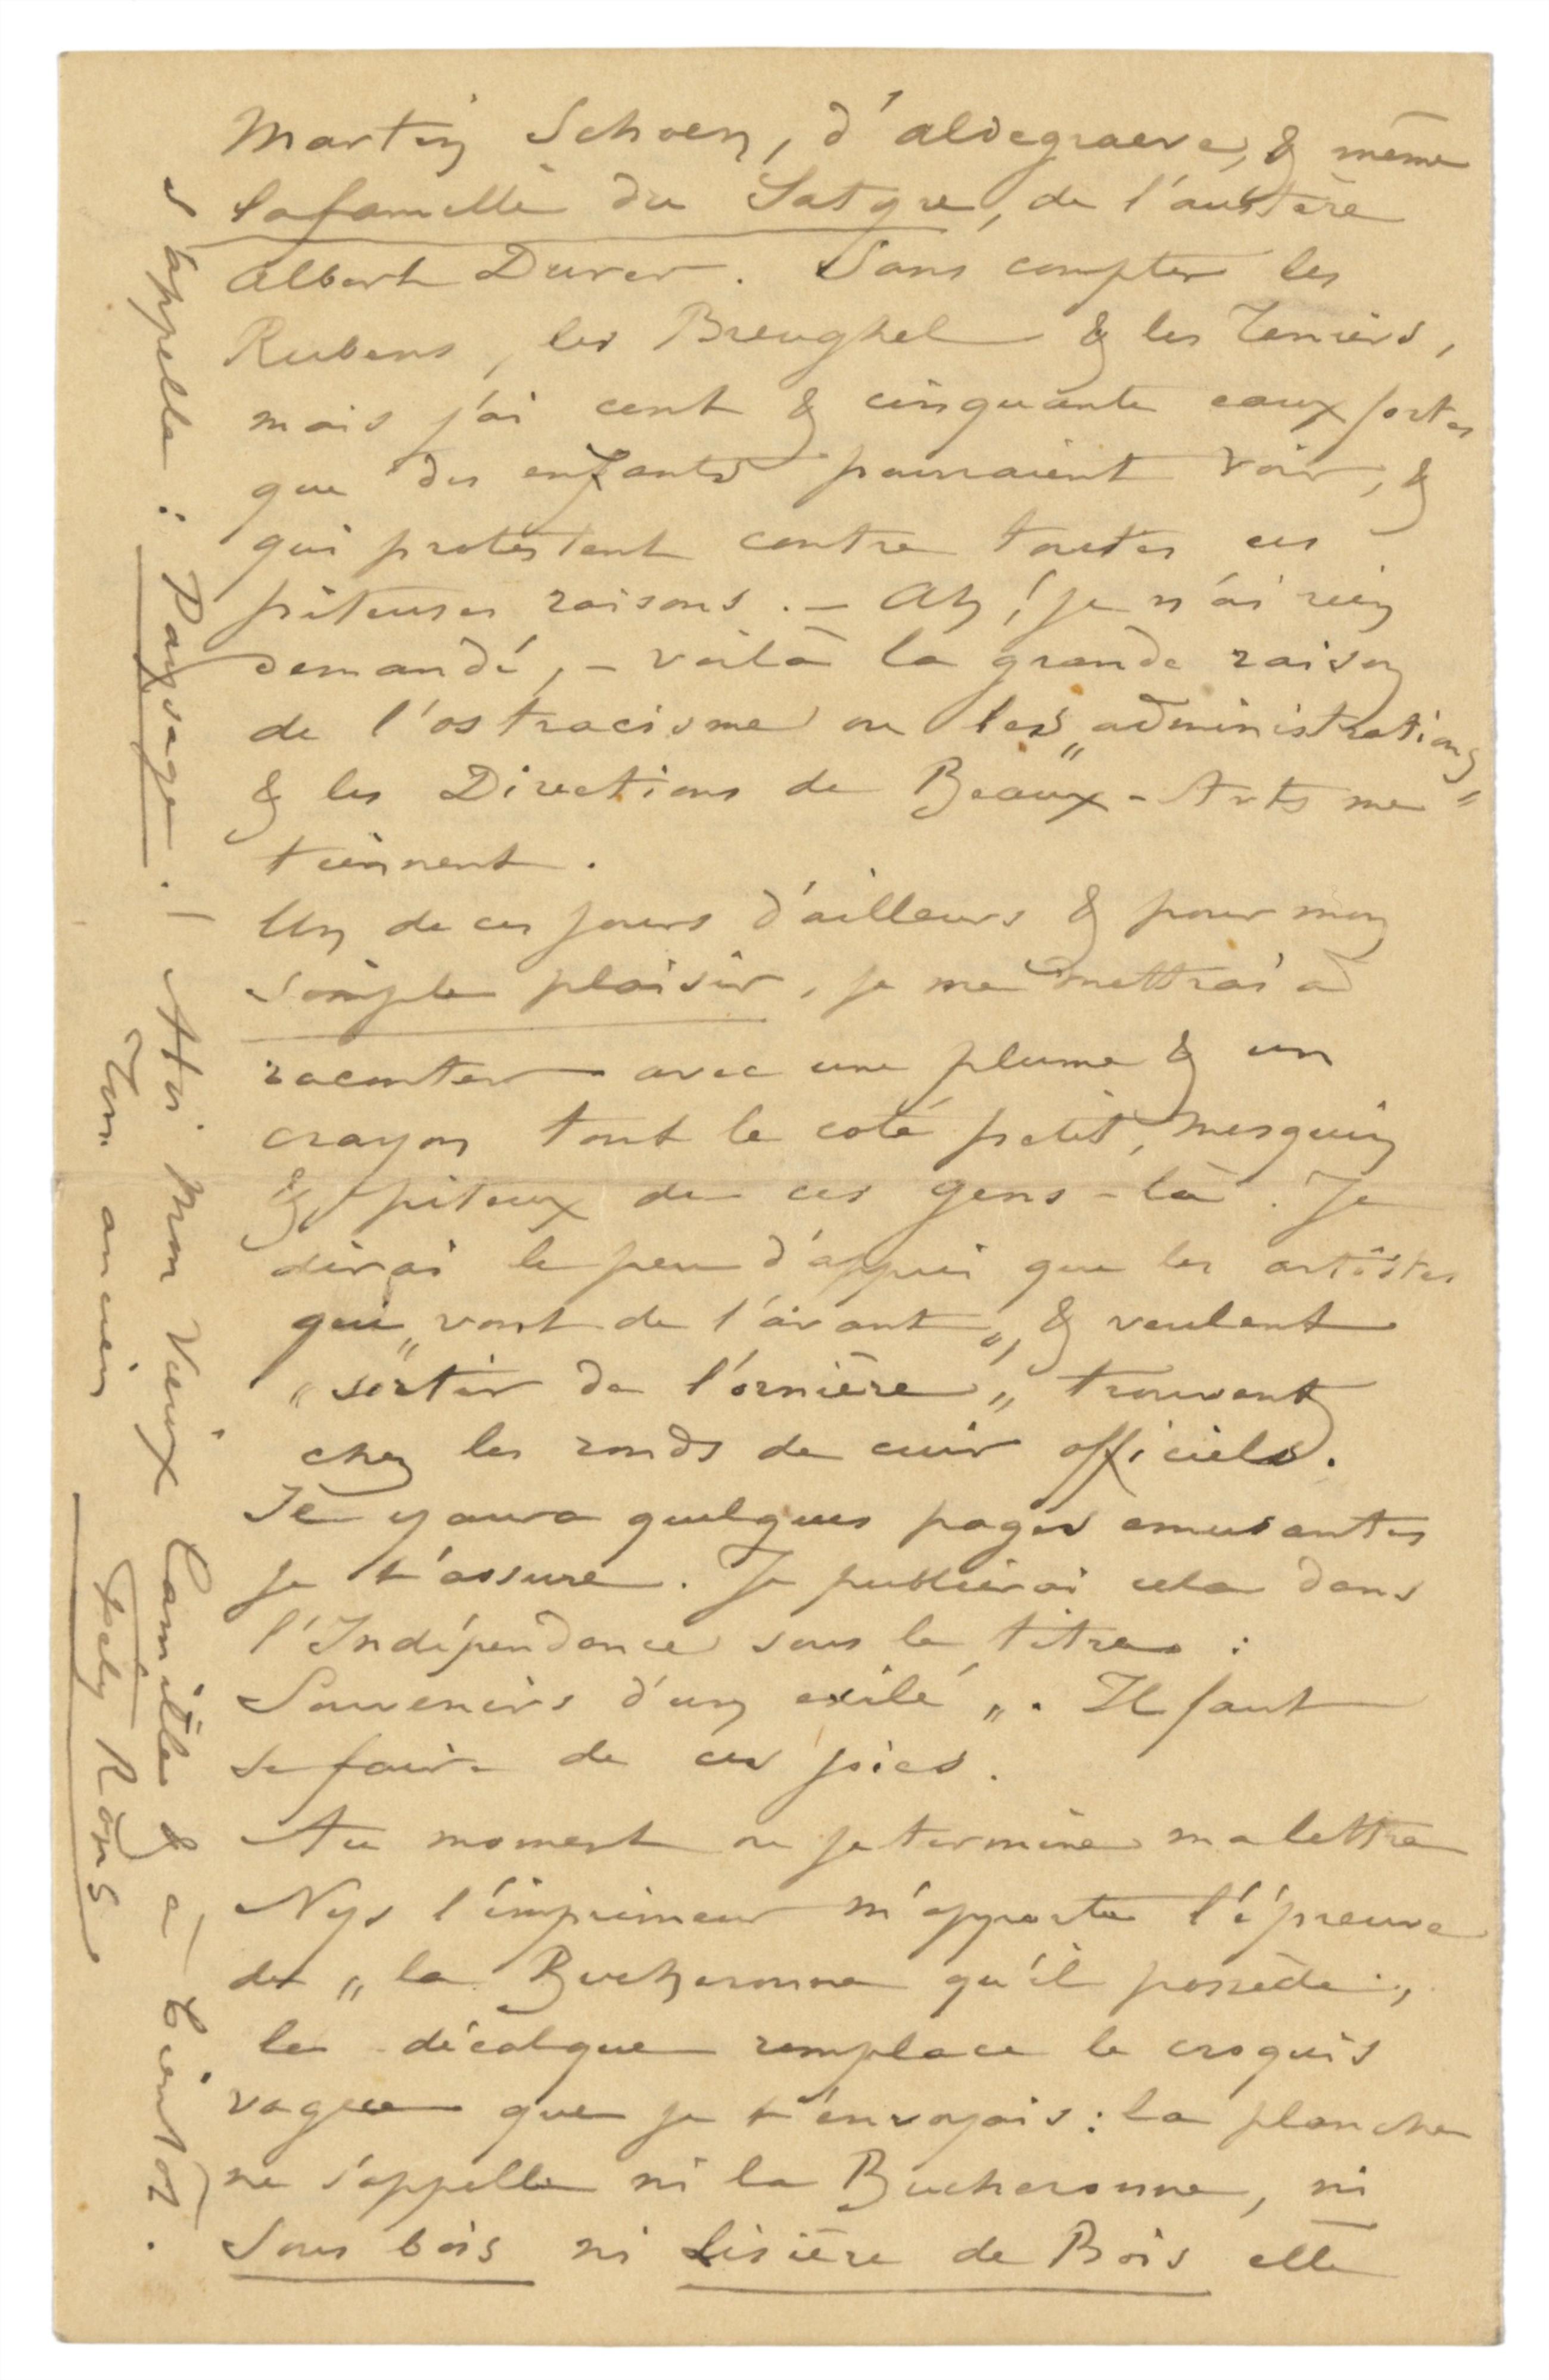 Martin Schoen, d'aldegraeve, & même
la famille du Satyre, de l'austère
Albert Durer. Sans compter les
Rubens, les Breughel & les Teniers,
mais j'ai cent & cinquante eaux fortes
que des enfants pourraient voir, &
qui protestent contre toutes ces
piteuses raisons. – Ah ! je n'ai rien
demandé, – voilà la grande raison
de l'ostracisme ou les „administrations"
& les Directions de Beaux-Arts me
tiennent.
Un de ces jours d'ailleurs & pour mon
simple plaisir, je me mettrai à
raconter avec une plume & un
crayon tout le coté petit, mesquin
& piteux de ces gens-là. Je
dirai le peu d'appui que les artistes
qui „vont de l'avant„, & veulent
„sortir de l'ornière„ trouvent
chez les ronds de cuir officiels.
Il y aura quelques pages amusantes
je t'assure. Je publierai cela dans
l'Indépendance sous le titre :
Souvenirs d'un exilé„. Il faut
se faire de ces joies.
Au moment ou je termine ma lettre
Nys l'imprimeur m'apporte l'épreuve
de „la Bucheronne qu'il possède.,
le décalque remplace le croquis
vague que je t'envoyais : la planche
ne s'appelle ni la Bucheronne, ni
Sous bois ni Lisière de Bois elle
s'appelle : Paysage. – A toi Mon Vieux Camille & a – bientôt.
Ton ancien
Fély Rops